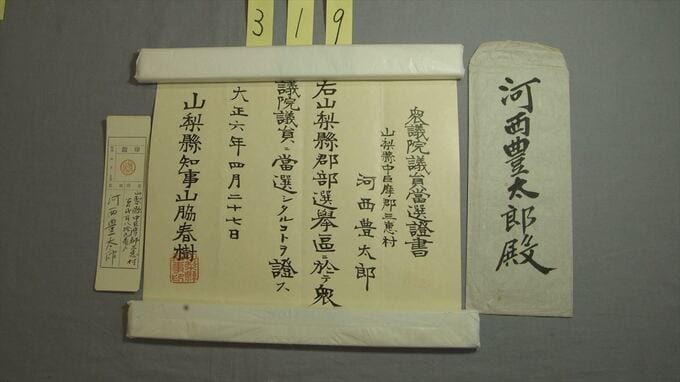 319
衆議院議員當選證書
山梨縣中巨摩郡三惠村
河西豊太郎
右山梨縣郡部選擧區ニ於テ衆
議院議員ニ當選シタルコトヲ證ス
大正六年四月二十七日
山梨縣知事山脇春樹
河西豊太郎殿
山梨縣中巨摩郡三惠村
河西豊太郎